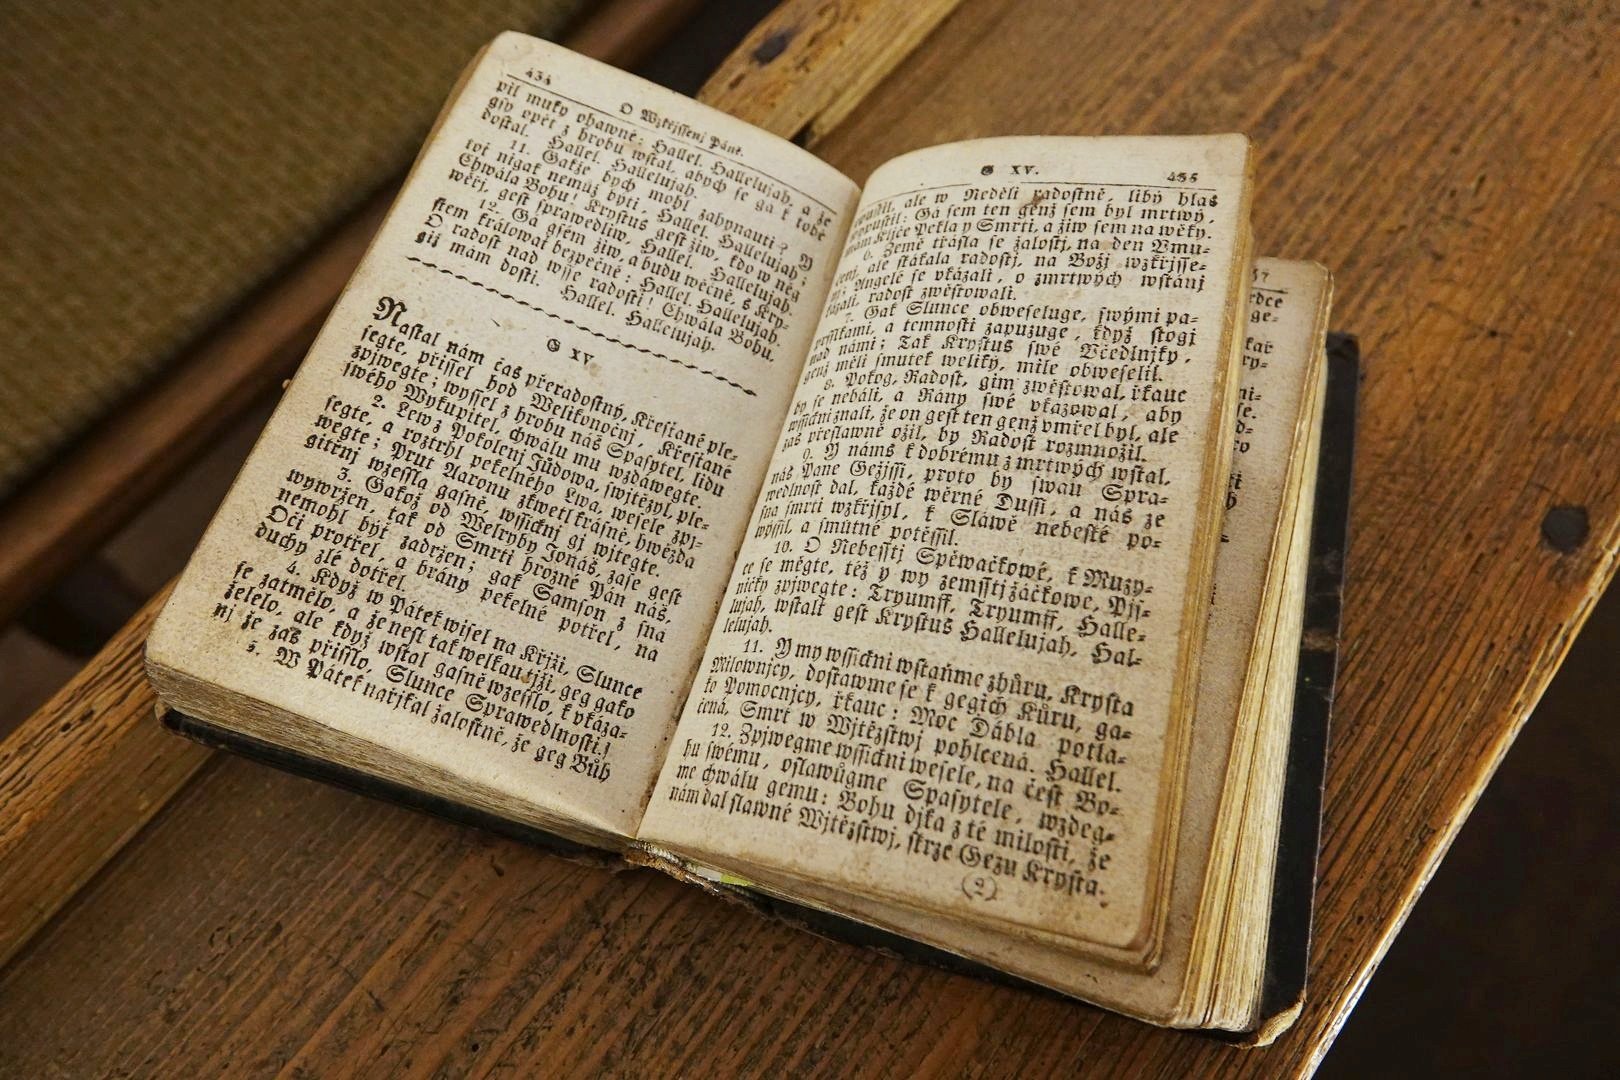 434
O Wzkřjssenj Páně.
pil muky ohawné: Hallel. Hallelujah. a že
gsy opět z hrobu wstal, abych se ga k tobě
dostal. Hallel. Hallelujah.
11. Gakže bych mohl zahynauti? Y
toť nigak nemůž byti, Hallel. Hallelujah;
Chwála Bohu! Krystus gest žiw, kdo w něg
wěřj, gest sprawedliw, Hallel. Hallelujah.
12. Ga gsem žiw, a budu wěčně, s Kry-
stem králowat bezpečně: Hallel. Hallelujah.
O radost nad wsse radosti! Chwála Bohu,
giž mám dosti. Hallel. Hallelujah.
G XV.
Nastal nám čas přeradostný, Křesťané ple-
segte, přissel hod Welikonočnj, Křesťané
zpjwegte; wyssel z hrobu náš Spasytel, lidu
swého Wykupitel, chwálu mu wzdáwegte.
2. Lew z Pokolenj Jůdowa, swjtězyl, ple-
segte, a roztrhl pekelného Lwa, wesele zpj-
wegte; Prut Aaronu zkwetl krásně, hwězda
gitřnj wzessla gasně, wssickni gi wjtegte.
3. Gakož od Welryby Jonáš, zase gest
wywržen, tak od Smrti hrozné Pán náš,
nemohl být zadržen; gak Samson z sna
Oči protřel, a brány pekelné potřel, na
duchy zlé dotřel
4. Když w Pátek wisel na Křjži, Slunce
se zatmělo, a že nesl tak welkau tjži, geg gako
želelo, ale když wstal gasně wzesslo, k vkáza-
nj že zas přisslo, Slunce Sprawedlnosti!
5. W Pátek nařjkal žalostně, že geg Bůh
G XV.
435
opustil, ale w Neděli radostně, libý hlas
wypustil: Gá sem ten genž sem byl mrtwý,
mám Kljče Pekla y Smrti, a žiw sem na wěky.
6. Země třásla se žalostj, na den Vmu-
čenj, ale skákala radostj, na Božj wzkřjsse-
nj; Angelé se vkázali, o zmrtwých wstánj
radost zwěstowali.
7. Gak Slunce obweseluge, swými pa-
prsskami, a temnosti zapuzuge, když stogj
nad námi; Tak Krystus swé Včedlnjky,
genž měli smutek weliký, mile obweselil.
8. Pokog, Radost, gim zwěstowal, řkauc
by se nebáli, a Rány swé vkazowal, aby
wssickni znali, že on gest ten genž vmřel byl, ale
zas přeslawně ožil, by Radost rozmnožil.
9. Y náms k dobrému z mrtwých wstal,
náš Pane Gežjssi, proto by swau Spra-
wedlnost dal, každé wěrné Dussi, a nás ze
sna smrti wzkřjsyl, k Sláwě nebeské po-
wýssil, a smutné potěssil.
10. O Nebesstj Spěwačkowé, k Muzy-
ce se měgte, též y wy zemsstj žáčkowe, Pjs-
ničky zpjwegte: Tryumff, Tryumff, Halle-
lujah, wstalt gest Krystus Hallelujah, Hal-
lelujah.
11. Y my wssickni wstaňme zhůru, Krysta
Milownjcy, dostawme se k gegich Kůru, ga-
ko Pomocnjcy, řkauc: Moc Ďábla potla-
čená, Smrt w Wjtězstwj pohlcená. Hallel.
12. Zpjwegme wssickni wesele, na čest Bo-
hu swému, oslawůgme Spasytele, wzdeg-
me chwálu gemu: Bohu djka z té milosti, že
nám dal slawné Wjtězstwj, skrze Gezu Krysta.
(2)